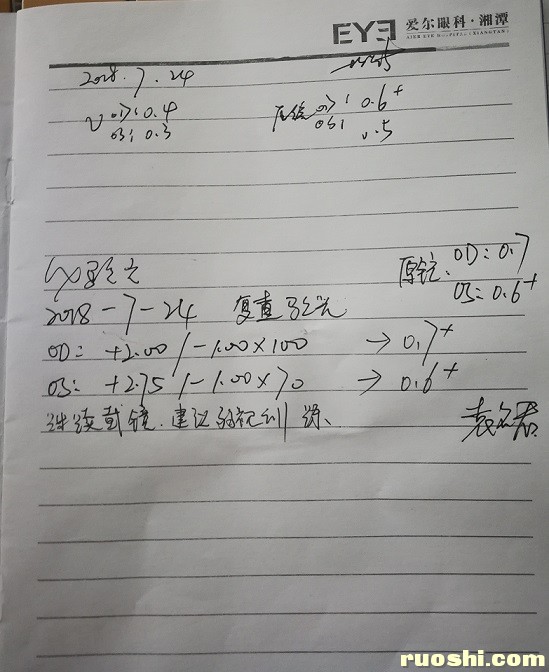 EYE 爱尔眼科·湘潭
AIER EYE HOSPITAL (XIANGTAN)
2018.7.24
V OD: 0.4
OS: 0.3
原镜 OD: 0.6+
OS: 0.5
验光
原镜: OD: 0.7
OS: 0.6+
2018-7-24 复查验光
OD: +2.00/-1.00×100 → 0.7+
OS: +2.75/-1.00×70 → 0.6+
继续戴镜.建议弱视训练.
ruoshi.com